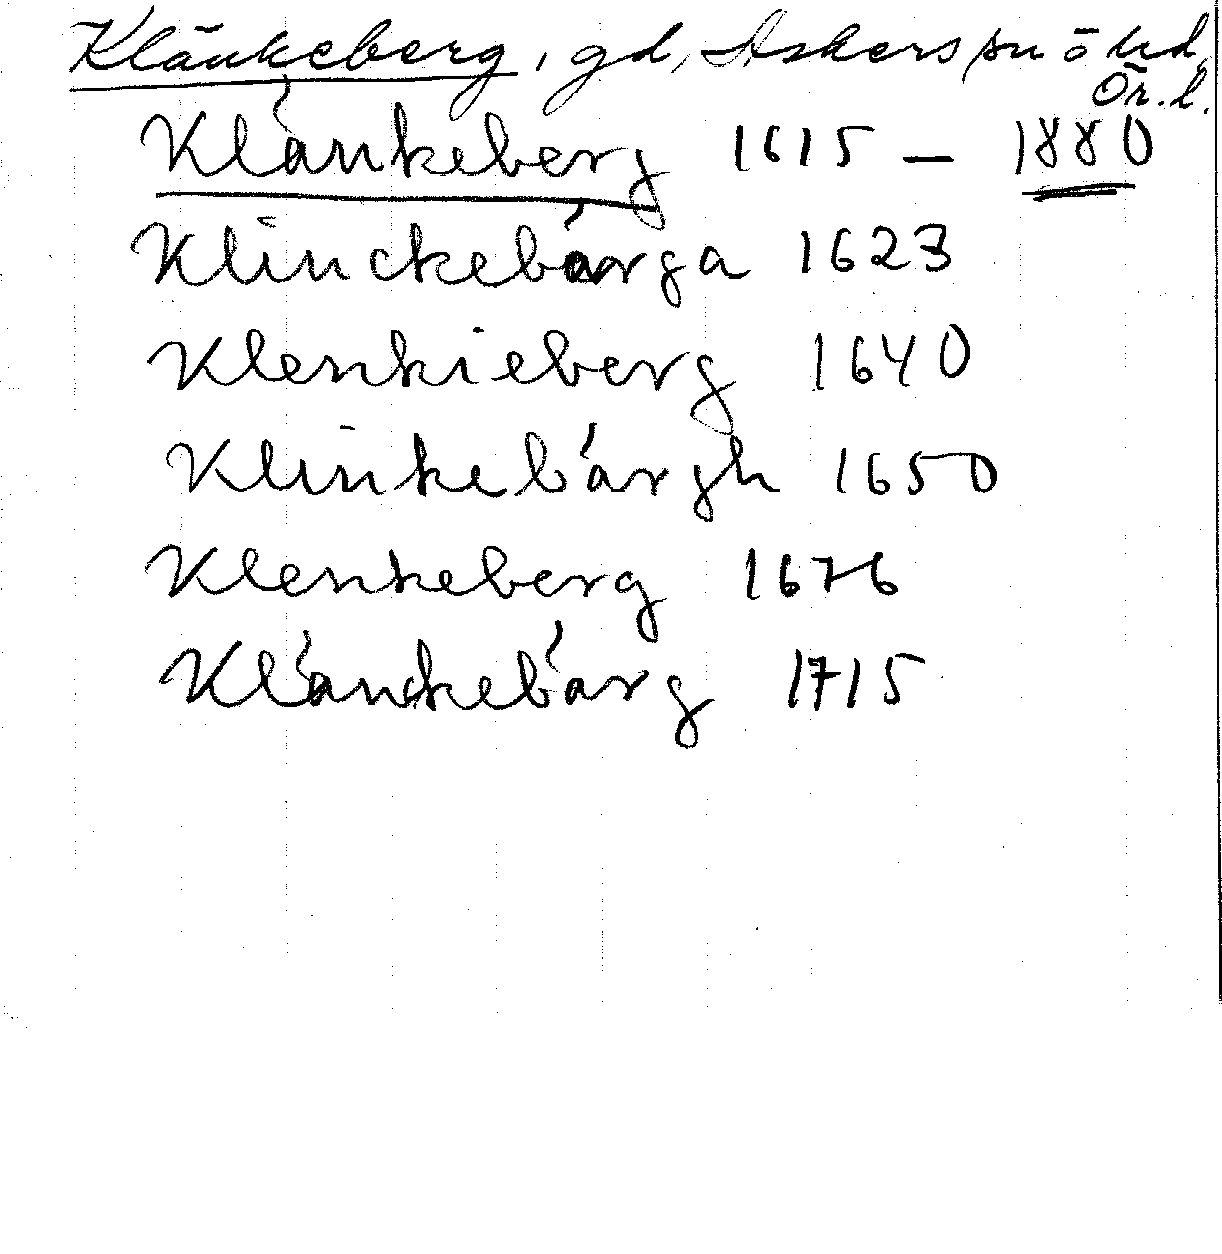 Klänkeberg, gd, Askers sn ö hd,
Ör. l.
Klänkeberg 1615 – 1880
Klinckebärga 1623
Klenkieberg 1640
Klinkebärgh 1650
Klenkeberg 1676
Klänckebärg 1715